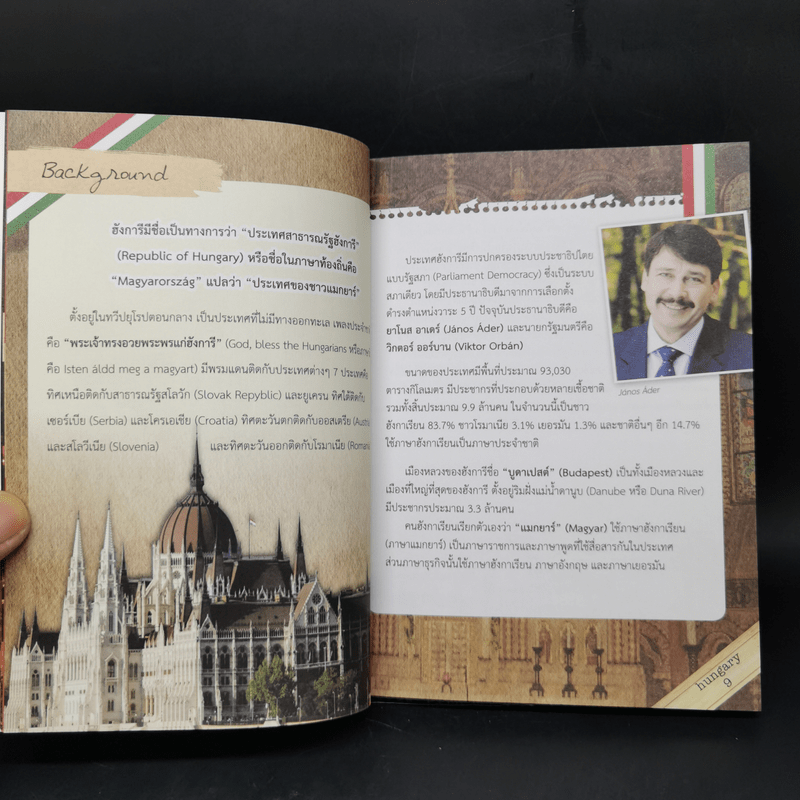 Background
ฮังการีมีชื่อเป็นทางการว่า “ประเทศสาธารณรัฐฮังการี”
(Republic of Hungary) หรือชื่อในภาษาท้องถิ่นคือ
“Magyarország” แปลว่า “ประเทศของชาวแมกยาร์”
ตั้งอยู่ในทวีปยุโรปตอนกลาง เป็นประเทศที่ไม่มีทางออกทะเล เพลงประจำ
คือ “พระเจ้าทรงอวยพระพรแก่ฮังการี” (God, bless the Hungarians หรือ
คือ Isten áldd meg a magyart) มีพรมแดนติดกับประเทศต่างๆ 7 ประเทศ
ทิศเหนือติดกับสาธารณรัฐสโลวัก (Slovak Repyblic) และยูเครน ทิศใต้ติดกับ
เซอร์เบีย (Serbia) และโครเอเชีย (Croatia) ทิศตะวันตกติดกับออสเตรีย
และสโลวีเนีย (Slovenia) และทิศตะวันออกติดกับโรมาเนีย
ประเทศฮังการีมีการปกครองระบบประชาธิปไตย
แบบรัฐสภา (Parliament Democracy) ซึ่งเป็นระบบ
สภาเดียว โดยมีประธานาธิบดีมาจากการเลือกตั้ง
ดำรงตำแหน่งวาระ 5 ปี ปัจจุบันประธานาธิบดีคือ
ยาโนส อาเดร์ (János Áder) และนายกรัฐมนตรีคือ
วิกตอร์ ออร์บาน (Viktor Orbán)
János Áder
ขนาดของประเทศมีพื้นที่ประมาณ 93,030
ตารางกิโลเมตร มีประชากรที่ประกอบด้วยหลายเชื้อชาติ
รวมทั้งสิ้นประมาณ 9.9 ล้านคน ในจำนวนนี้เป็นชาว
ฮังกาเรียน 83.7% ชาวโรมาเนีย 3.1% เยอรมัน 1.3% และชาติอื่นๆ อีก 14.7%
ใช้ภาษาฮังกาเรียนเป็นภาษาประจำชาติ
เมืองหลวงของฮังการีชื่อ “บูดาเปสต์” (Budapest) เป็นทั้งเมืองหลวงและ
เมืองที่ใหญ่ที่สุดของฮังการี ตั้งอยู่ริมฝั่งแม่น้ำดานูบ (Danube หรือ Duna River)
มีประชากรประมาณ 3.3 ล้านคน
คนฮังกาเรียนเรียกตัวเองว่า “แมกยาร์” (Magyar) ใช้ภาษาฮังกาเรียน
(ภาษาแมกยาร์) เป็นภาษาราชการและภาษาพูดที่ใช้สื่อสารกันในประเทศ
ส่วนภาษาธุรกิจนั้นใช้ภาษาฮังกาเรียน ภาษาอังกฤษ และภาษาเยอรมัน
hungary
9